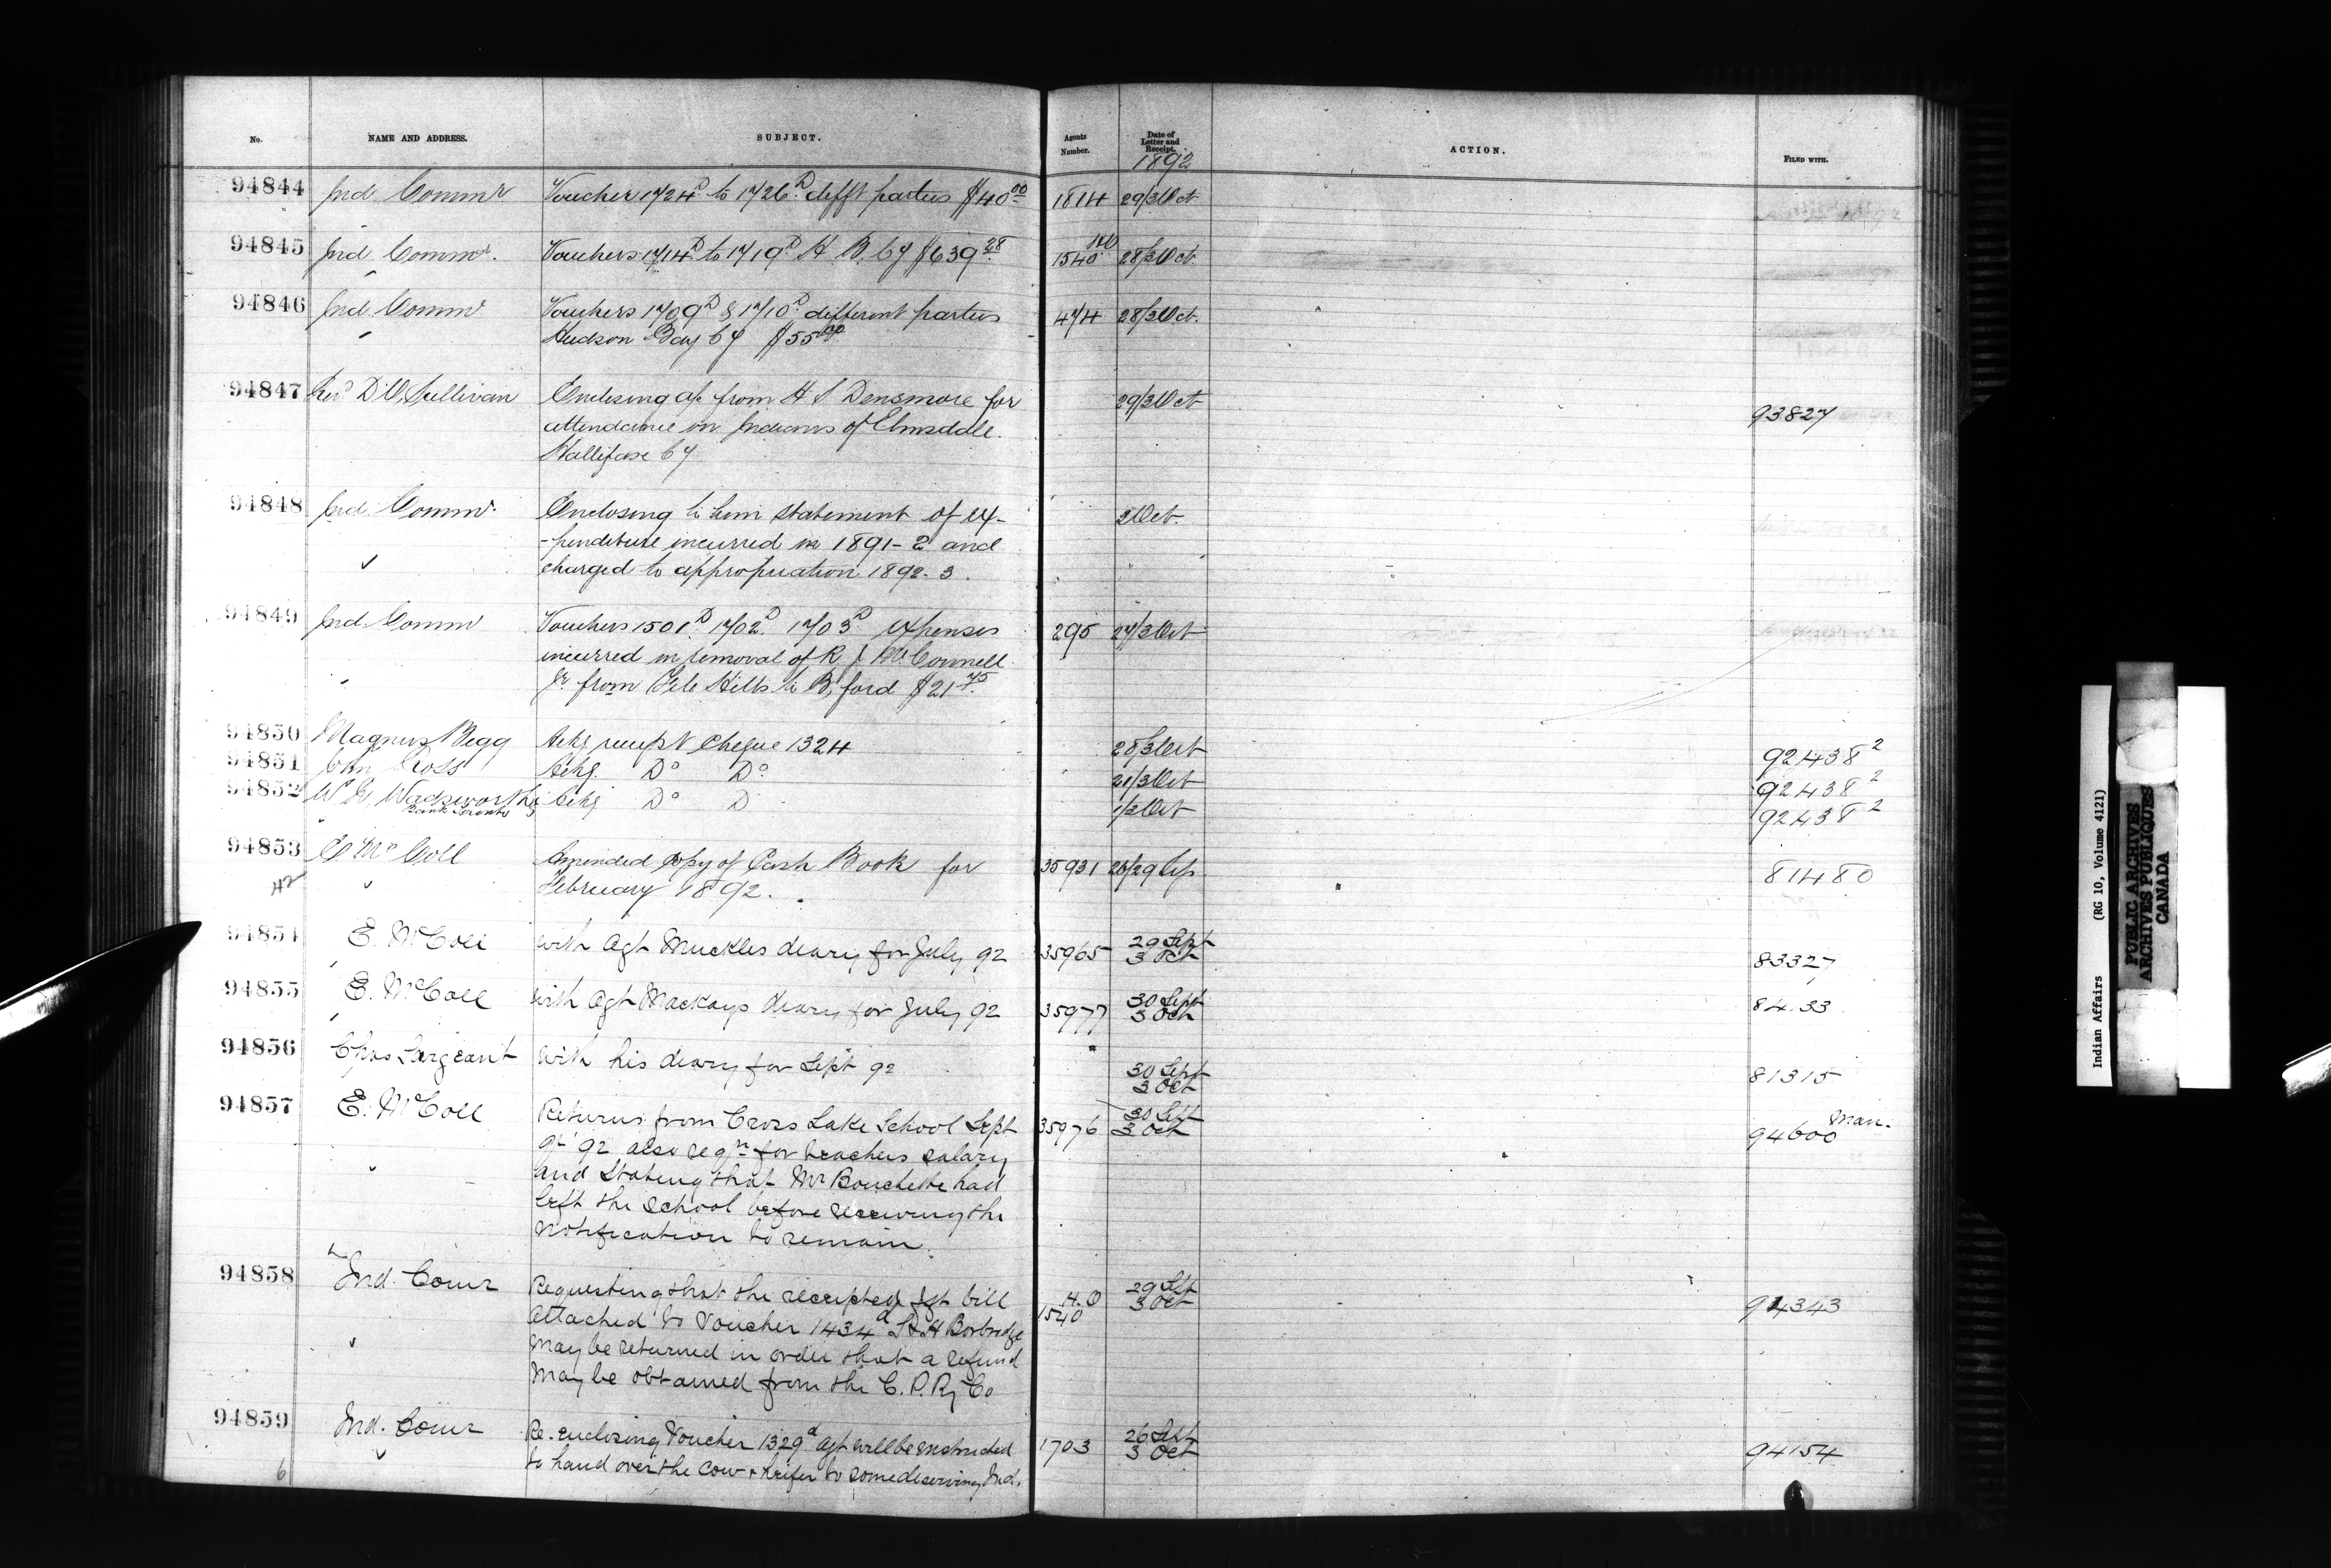 No. NAME AND ADDRESS. SUBJECT. Agents Number. Date of Letter and Receipt. ACTION. FILED WITH.
1892
94844 Ind Commr Voucher 1724D to 1726D difft parties $40.00 1814 29/3 Oct
94845 Ind. Commr. Vouchers 1714D to 1719D H B. Cy $639.28 1540 HO 28/3 Oct.
94846 Ind. Commr Vouchers 1709D & 1710D different parties 474 28/3 Oct.
Hudson Bay Cy $55
94847 Revd D O'Sullivan Enclosing a/c from H S Densmore for 29/3 Oct 93827
attendance on Indians of Elmsdale
Hallifax Cy
94848 Ind. Commr. Enclosing to him statement of ex- 2 Oct.
-penditure incurred in 1891-2 and
charged to appropriation 1892-3.
94849 Ind. Commr Vouchers 1501D 1702D 1703D expenses 295 27/3 Oct
incurred in removal of R J McConnell
Jr from File Hills to B'ford $21.75
94850 Magnus Begg Ackg receipt Cheque 1324 28/3 Oct 92438 2
94851 Ackg. Do Do 21/3 Oct 92438 2
94852 W. Wadsworth Ackg Do D 1/3 Oct 92438 2
Bank Toronto
94853 E McColl Amended Copy of Cash Book for 35931 26/29 Sep. 81480
February 1892.
94854 E. McColl with Agt Muckles diary for July 92 35965 29 Sept 3 Oct 83327
94855 E. McColl with Agt Mackays diary for July 92 35977 30 Sept 3 Oct 84.33
94856 Chas Sargeant With his diary for Sept 92 30 Sept 3 Oct 81315
94857 E. McColl Returns from Cross Lake School Sept 35976 30 Sept 3 Oct 94600 Man.
Qr 92 also reqn for teachers salary
and Stating that Mr Bouchette had
left the school before receiving the
notification to remain.
94858 Ind. Comr Requesting that the receipted fgt bill H.O 1540 29 Sept 3 Oct 94343
attached to Voucher 1434d S & H Borbridge
may be returned in order that a refund
may be obtained from the C. P. Ry Co
94859 Ind. Comr Re-enclosing Voucher 1329d agt will be instructed 1703 26 Sept 3 Oct 94154
to hand over the cow & heifer to some deserving Ind.
6
Indian Affairs (RG 10, Volume 4121)
PUBLIC ARCHIVES
ARCHIVES PUBLIQUES
CANADA